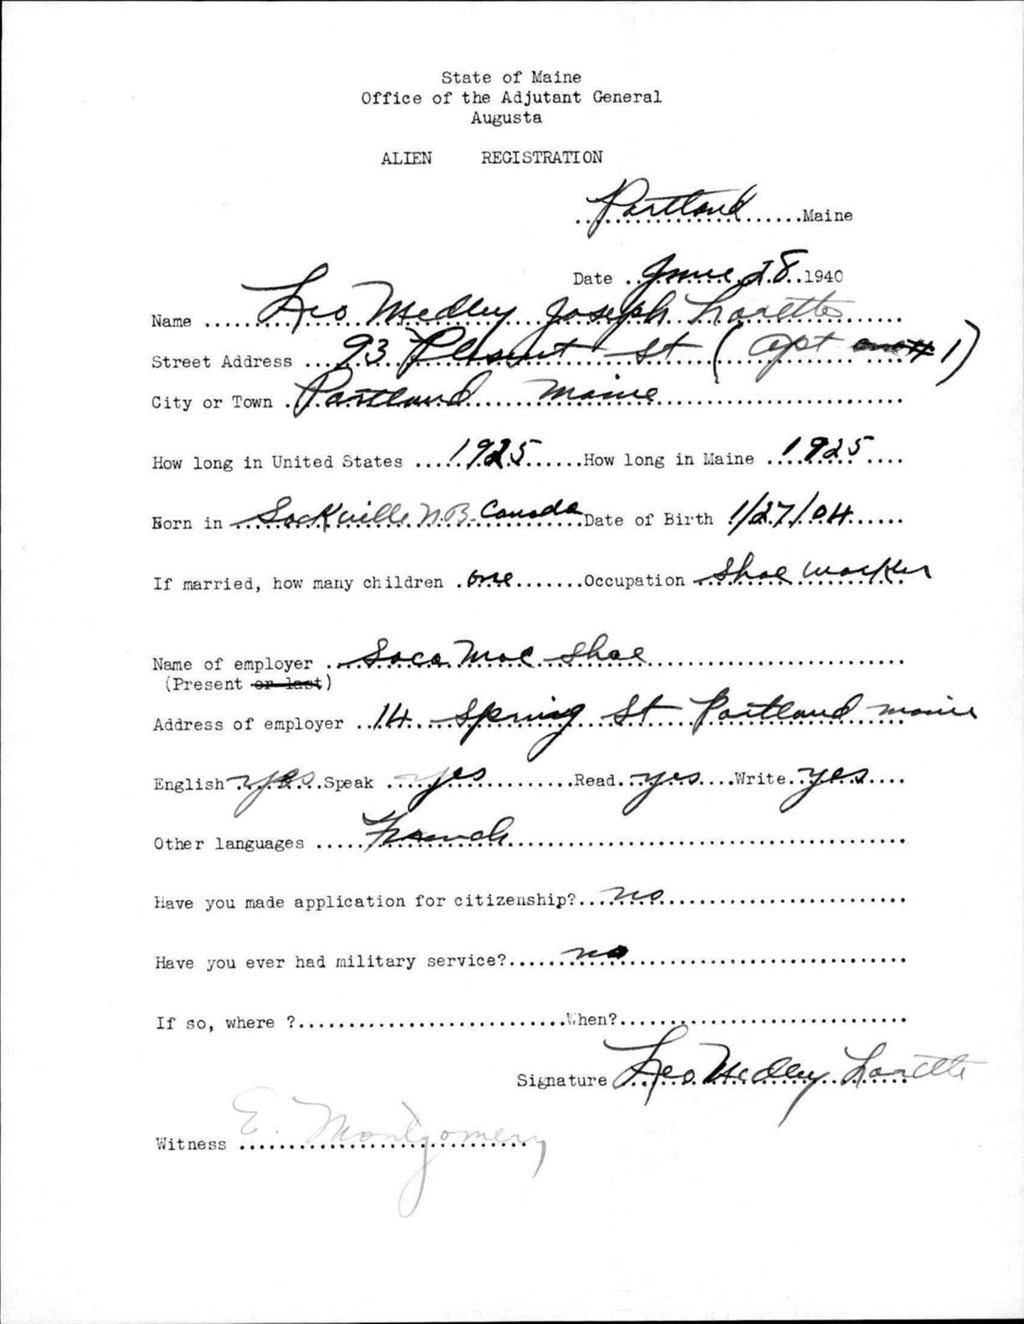 State of Maine
Office of the Adjutant General
Augusta
ALIEN REGISTRATION
Portland Maine
Date June 28 1940
Name Leo Medley Joseph Lorette
Street Address 93 Plesent St (Apt # 1)
City or Town Portland Maine
How long in United States 1925 How long in Maine 1925
Born in Sackville N.B. Canada Date of Birth 1/27/04
If married, how many children one Occupation Shoe worker
Name of employer Soco Moc Shoe
(Present or last)
Address of employer 14 Spring St Portland Maine
English yes Speak yes Read yes Write yes
Other languages French
Have you made application for citizenship? no
Have you ever had military service? no
If so, where ? When?
Signature Leo Medley Lorette
Witness E. Montgomery